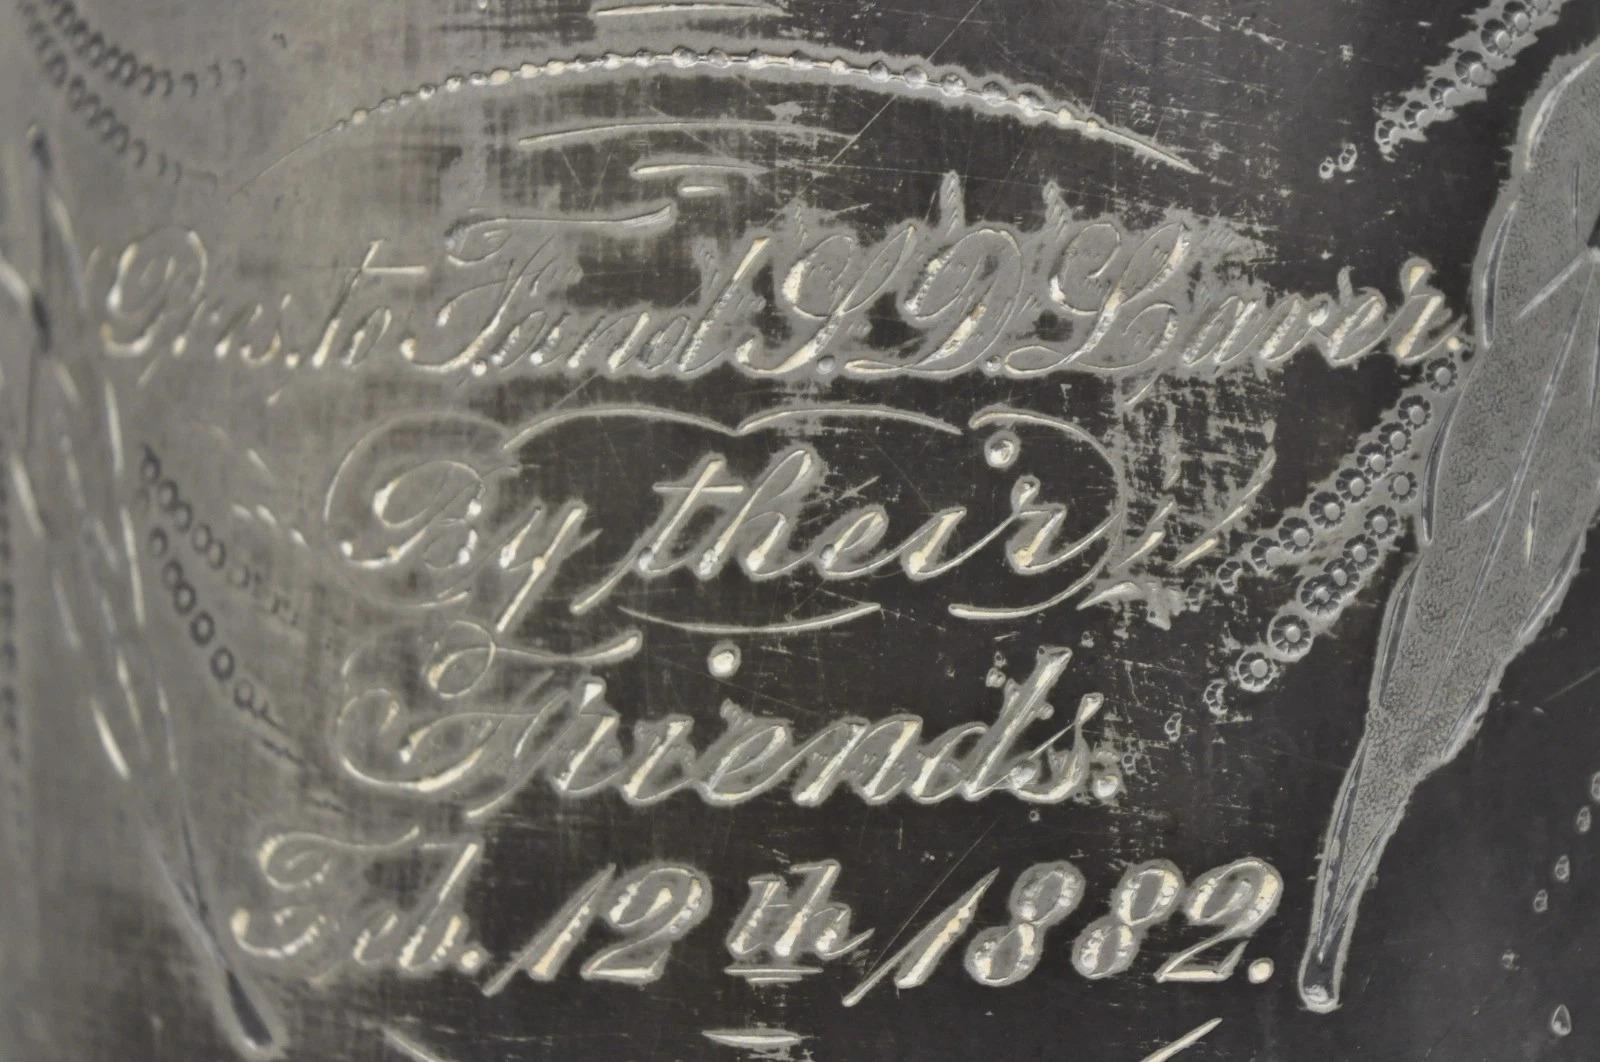 Pres. to F. and S. D. Laver.
By their
Friends.
Feb. 12th 1882.